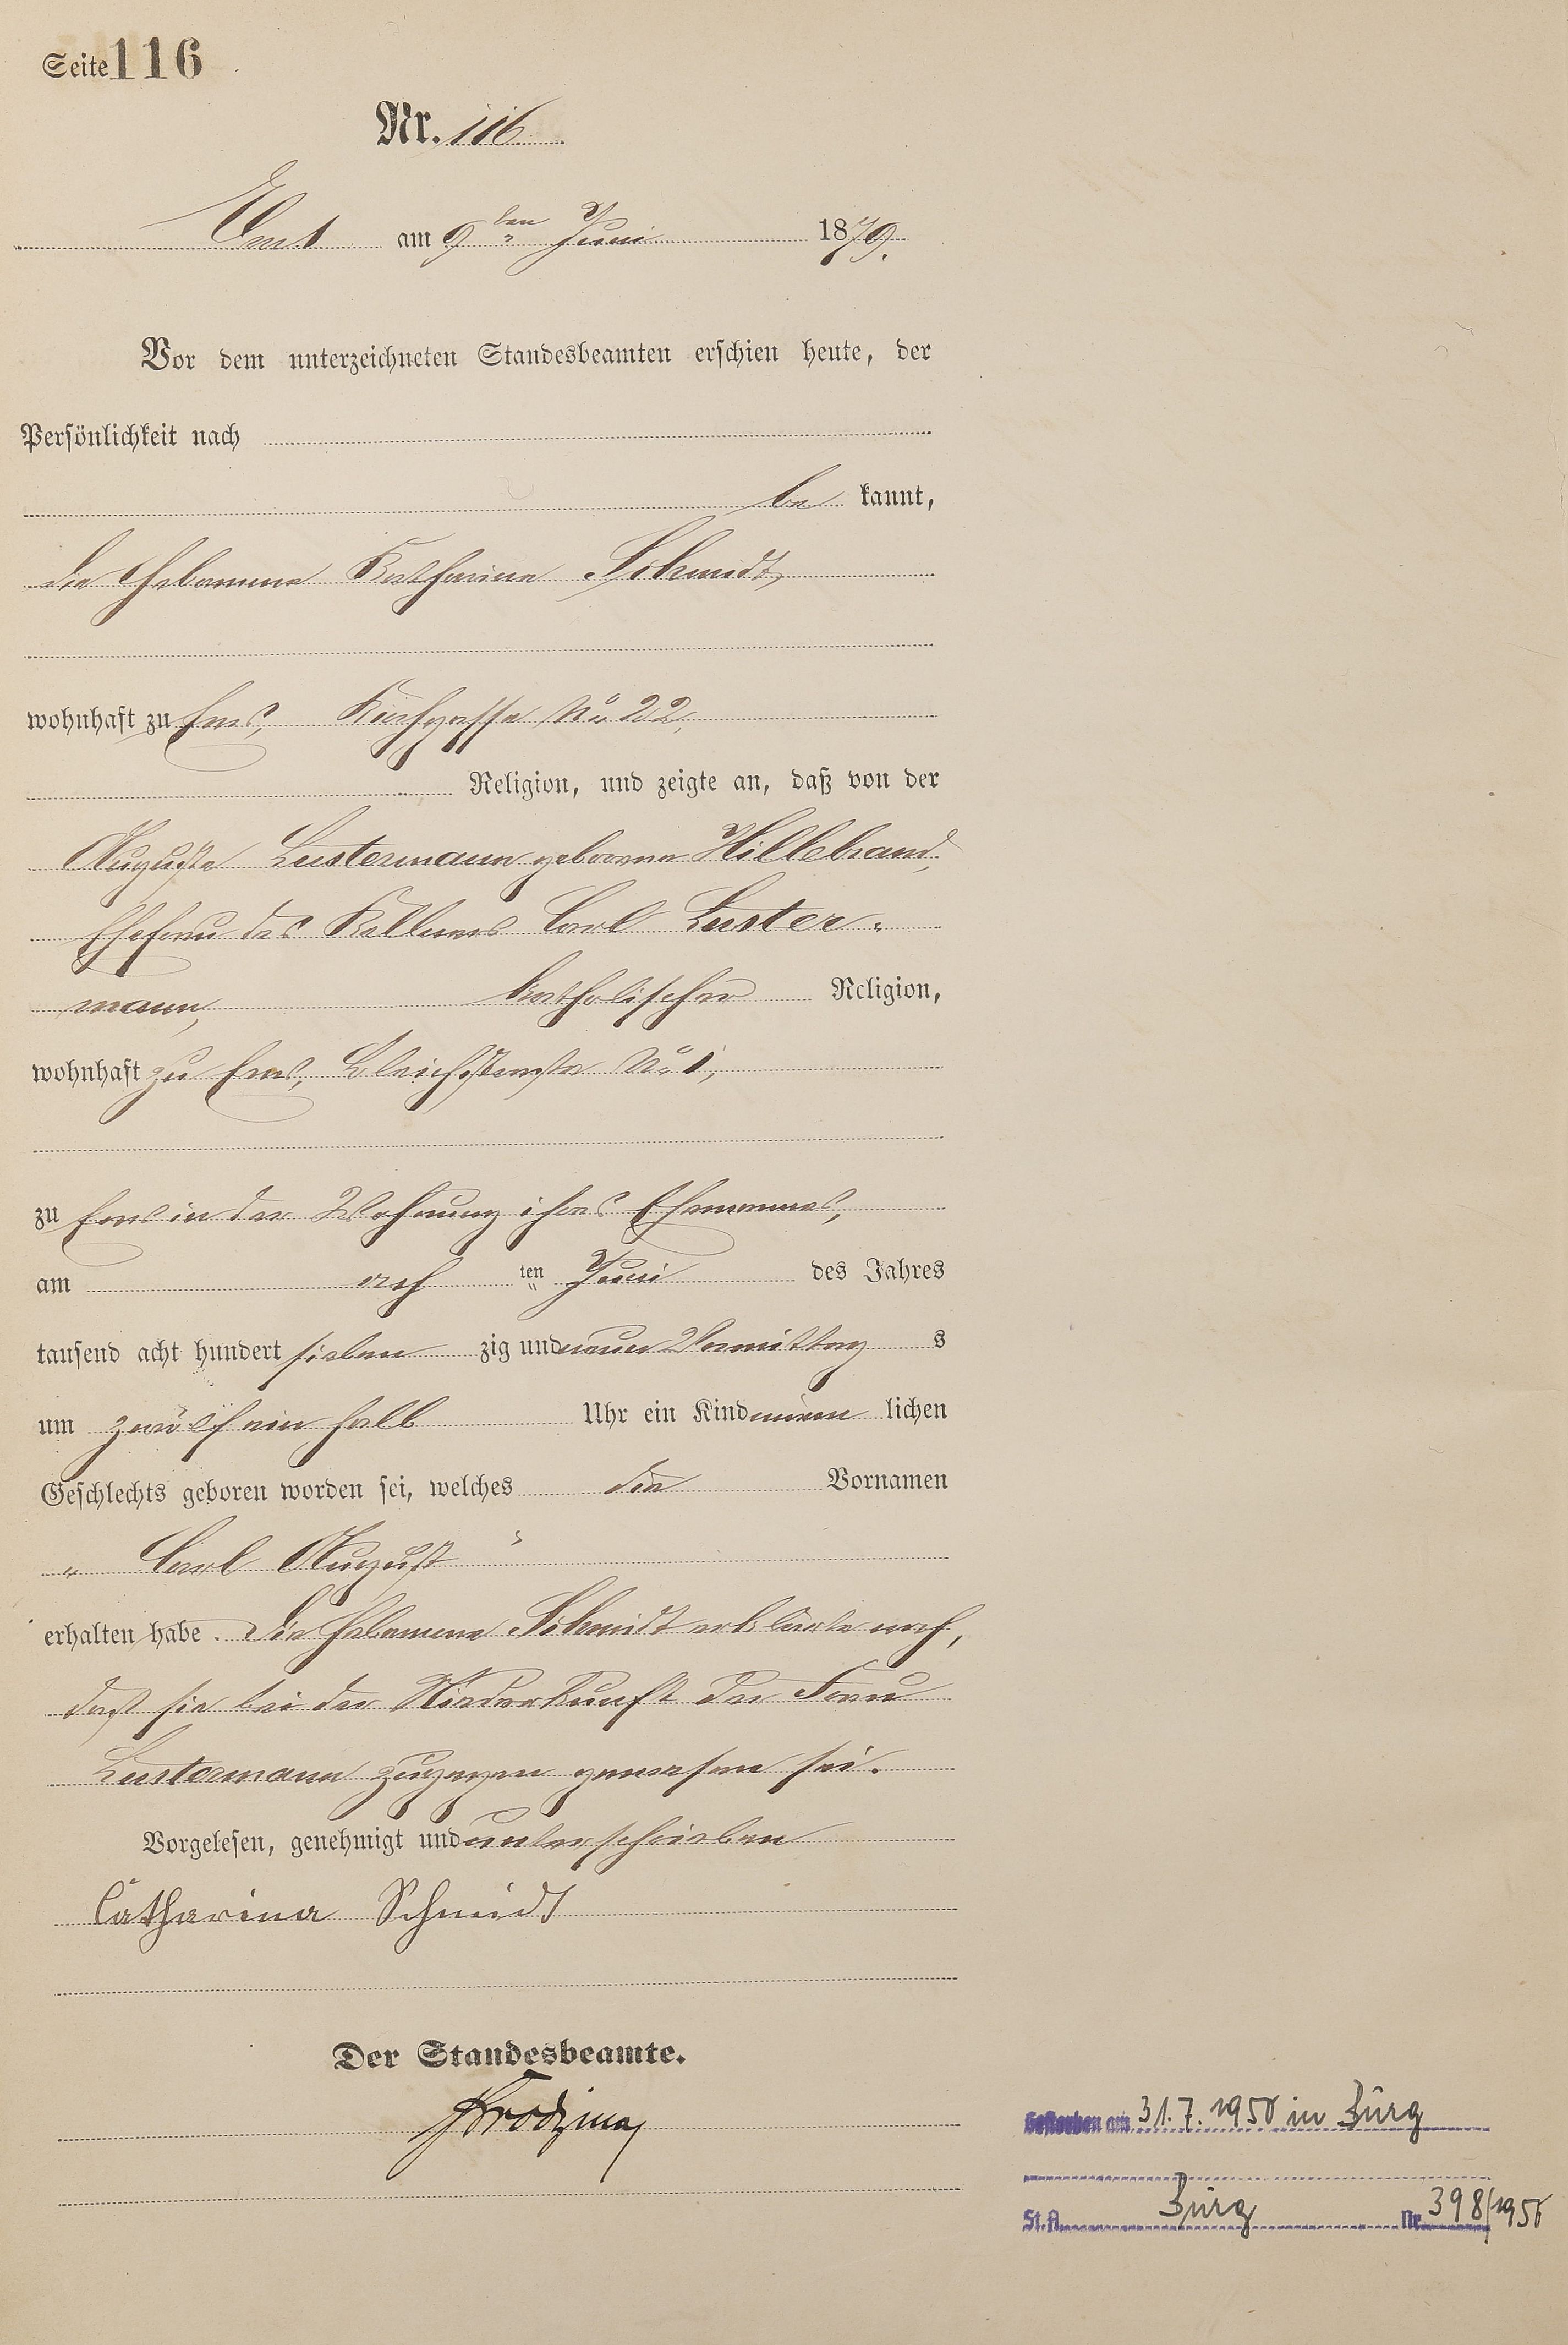 Seite 116
Nr. 116.
Ems am 9ten Juni 1879.
Vor dem unterzeichneten Standesbeamten erschien heute, der
Persönlichkeit nach
be kannt,
die Hebamme Katharina Schmidt,
wohnhaft zu Ems, Kirchgasse No 22,
Religion, und zeigte an, daß von der
Auguste Lustermann geborene Hillebrand,
Ehefrau des Kellners Carl Luster-
mann, katholischer Religion,
wohnhaft zu Ems, Bleichstraße No 1,
zu Ems in der Wohnung ihres Ehemannes,
am ach ten Juni des Jahres
tausend acht hundert sieben zig und neun Vormittag s
um zwölf ein halb Uhr ein Kind männ lichen
Geschlechts geboren worden sei, welches die Vornamen
„ Carl August "
erhalten habe. Die Hebamme Schmidt erklärte noch,
daß sie bei der Niederkunft der Frau
Lustermann zugegen gewesen sei.
Vorgelesen, genehmigt und unterschrieben
Catharina Schmidt
Der Standesbeamte.
Gestorben am 31.7. in
St.A. Nr. 398